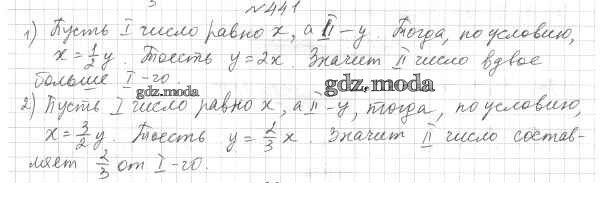 №441
1) Пусть I число равно x, а II – y. Тогда, по условию,
x = 1/2 y. Тоесть y = 2x. Значит II число вдвое
больше I-го.
gdz.moda
gdz.moda
2) Пусть I число равно x, а II – y, тогда, по условию,
x = 3/2 y. Тоесть y = 2/3 x. Значит II число состав-
ляет 2/3 от I-го.